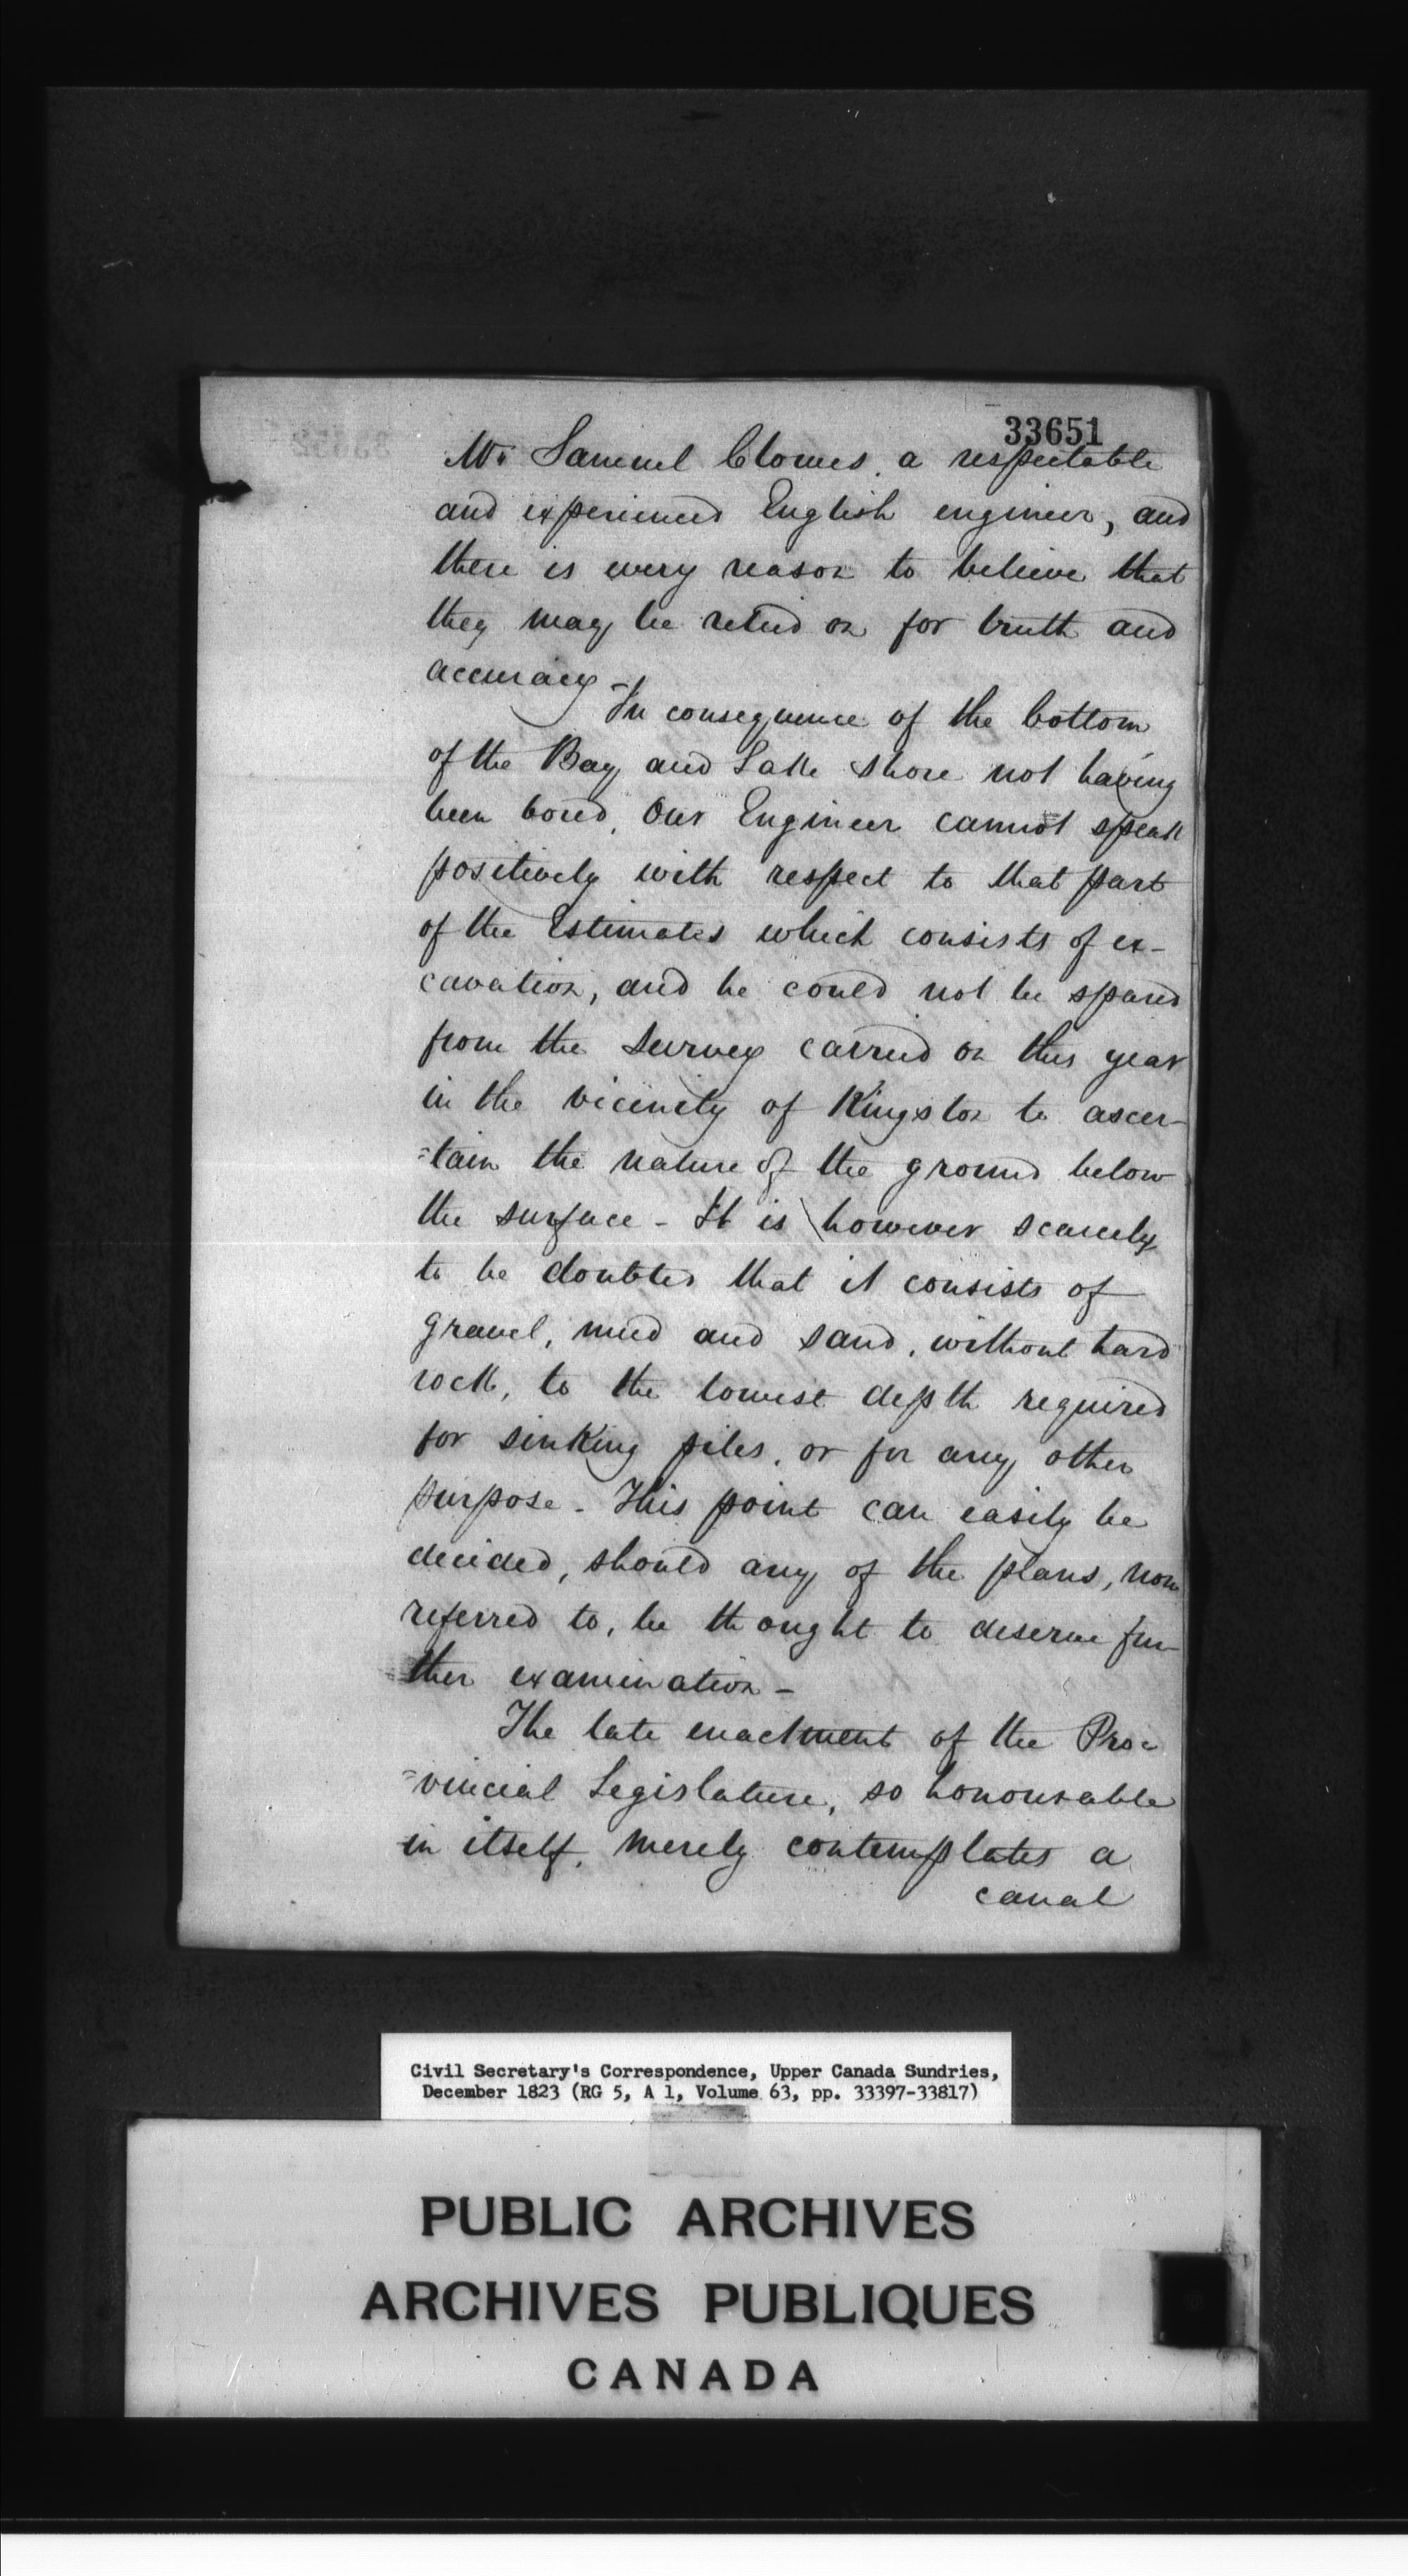 33651
Mr Samuel Clowes, a respectable
and experienced English engineer, and
there is every reason to believe that
they may be relied on for truth and
accuracy -
In consequence of the bottom
of the Bay and Lake shore not having
been bored, Our Engineer cannot speak
positively with respect to that part
of the Estimates which consists of ex-
cavation, and he could not be spared
from the Survey carried on this year
in the vicinity of Kingston to ascer-
=tain the nature of the ground below
the surface - It is however scarcely
to be doubted that it consists of
gravel, mud and sand, without hard
rock, to the lowest depth required
for sinking piles, or for any other
purpose - This point can easily be
decided, should any of the plans, now
referred to, be thought to deserve fur-
ther examination -
The late enactment of the Pro=
=vincial Legislature, so honourable
in itself, merely contemplates a
canal
Civil Secretary's Correspondence, Upper Canada Sundries,
December 1823 (RG 5, A 1, Volume 63, pp. 33397-33817)
PUBLIC ARCHIVES
ARCHIVES PUBLIQUES
CANADA